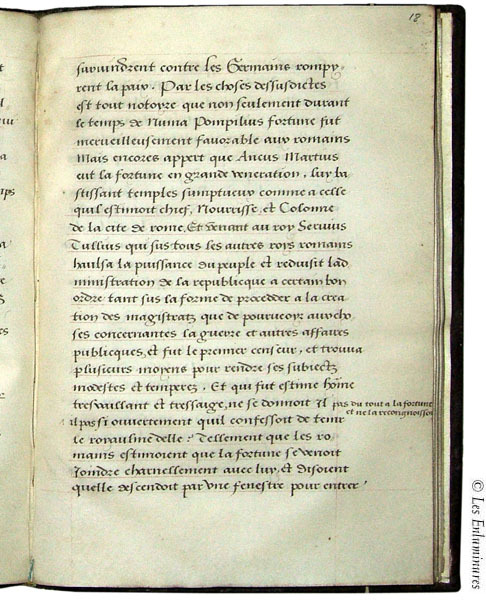 18
suruindrent contre les Germains rompy-
rent la paix. Par les choses dessusdictes
est tout notoyre que non seulement durant
le temps de Numa Pompilius fortune fut
merveilleusement favorable aux romains
Mais encores appert que Ancus Martius
eut la fortune en grande veneration, luy ba
stissant temples sumptueux comme a celle
quil estimoit chief, Nourrisse, et Colonne
de la cite de rome, Et venant au roy Servius
Tullius qui sus tous les autres roys romains
haulsa la puissance du peuple et rediuisit lad
ministration de la republicque a certain bon
ordre tant sus la forme de proceder a la crea
tion des magistratz que de pourveoyr aux cho
ses concernantes la guerre et autres affaires
publicques, et fut le premier censeur, et trouva
plusieurs moyens pour rendre ses subiectz
modestes et temperez. Et qui fut estime hōme
tresvaillant et tressaige, ne se donnoit Il pas du tout a la fortune
et ne la recongnoissoit
il pas si ouvertement quil confessoit de tenir
le royaulme delle? Tellement que les ro
mains estimoient que la fortune se venoit
Joindre charnellement avec luy, et disoient
quelle descendoit par une fenestre pour entrer
© Les Enluminures